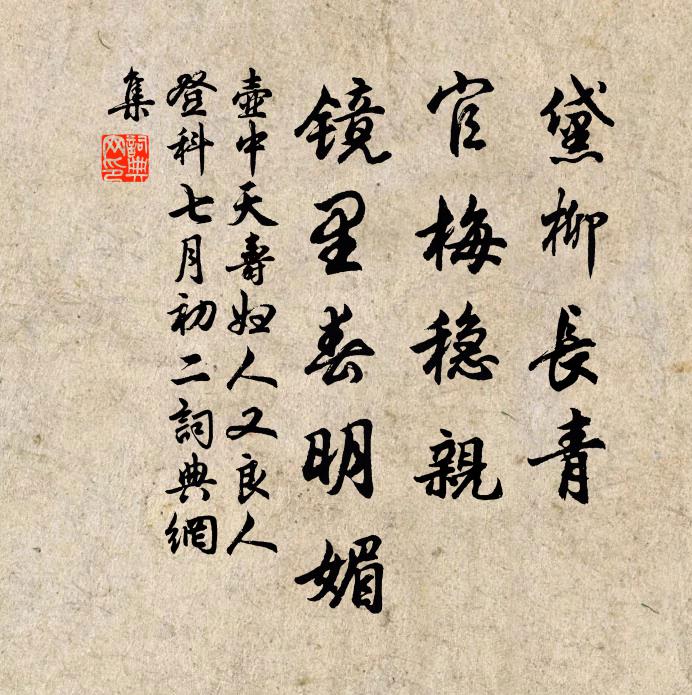 黛柳長青
官梅穩親
镜里春明媚
壺中天壽婦人又良人
登科七月初二詞典網
集
詞典
网印